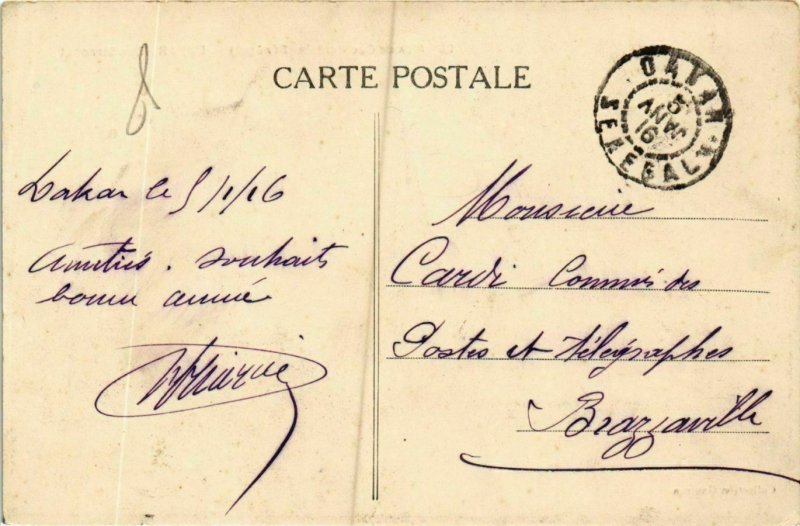 CARTE POSTALE
DAKAR
5
JANV
16
SENEGAL
Dakar le 5/1/16
Amitiés. souhaits
bonne année
Monsieur
Cardi Commis des
Postes et télégraphes
Brazzaville